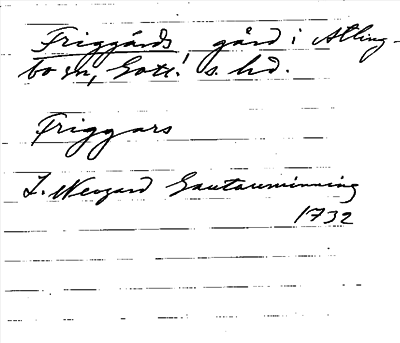 Friggårds gård i Atling-
bo sn, Gotl. s. hd.
Friggars
J. Neogard Gautauminning
1732